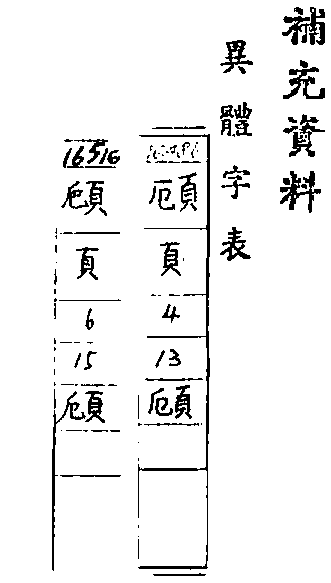 補充資料
異體字表
頋
頁
4
13
頋
16516
頁
6
15